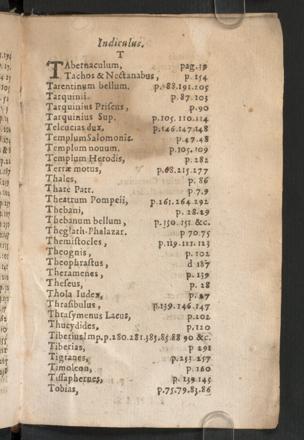 Indiculus.
T
TAbernaculum, pag.19
Tachos & Nectanabus, p.254
Tarentinum bellum. p.88.191.205
Tarquinii. p.87.103
Tarquinius Priscus, p.90
Tarquinius Sup. p.105.110.114
Telcutias dux, p.146.147.148
Templum Salomonis. p.47.48
Templum nouum. p.105.109
Templum Herodis, p.282
Terræ motus, p.68.215.277
Thales, p.86
Thare Patr. p 7.9
Theatrum Pompeii, p.261.264.292
Thebani, p.28.29
Thebanum bellum, p.150.151.&c.
Theglath-Phalazar. p 70.75
Themistocles, p.119.111.123
Theognis, p.102
Theophrastus, d 187
Theramenes, p.139
Theseus, p.28
Thola Iudex, p.27
Thrasibulus, p.139.146.147
Thrasymenus Lacus, p.202
Thucydides, p.120
Tiberius Imp, p.280.281.383.85.88 90 &c.
Tiberias, p 291
Tigranes, p.253.257
Timoleon, p.160
Tissaphernes, p.139.145
Tobias, p.75.79.83.86